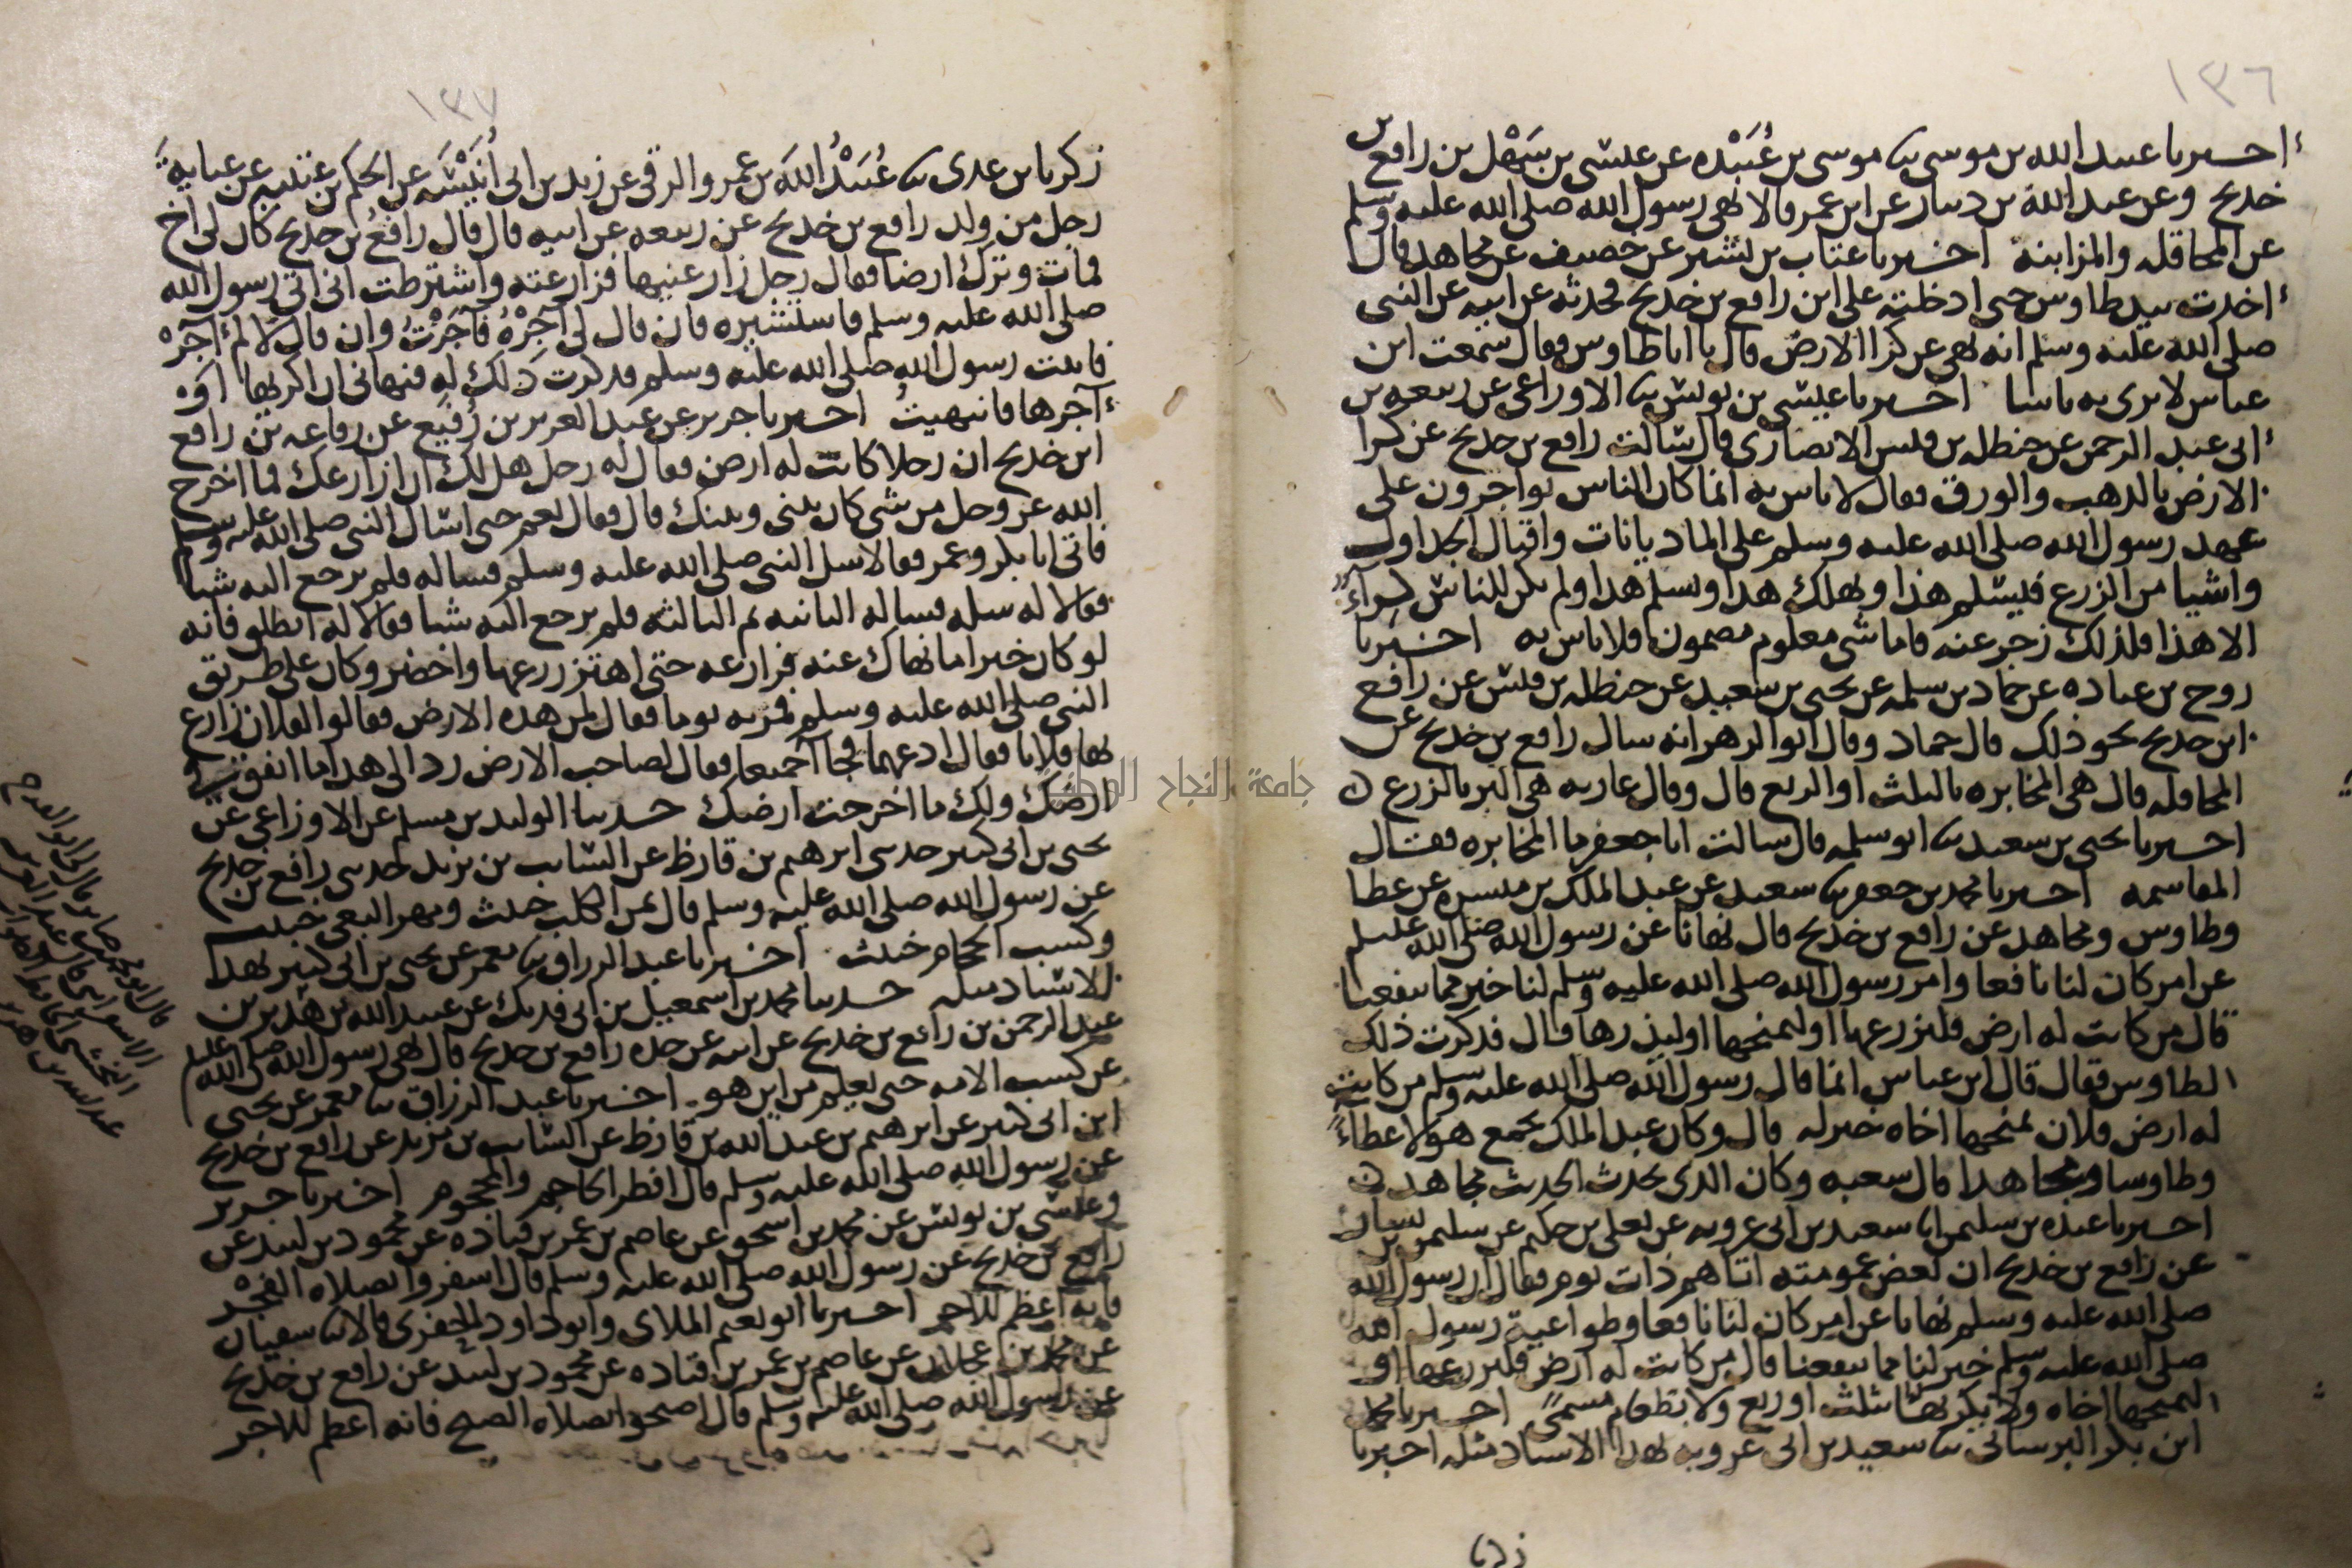 ١٣٦
اخبرنا عبيد الله بن موسى نا موسى بن عُبَيْده عن عيسى بن سَهْل بن رافع بن
خديج وعن عبد الله بن دينار عن ابن عمر قالا نهى رسول الله صلى الله عليه وسلم
عن المحاقله والمزابنه اخبرنا عتاب بن بشير عن خصيف عن مجاهد قال
اخذت بيد طاوس حتى ادخلته على ابن رافع بن خديج فحدثه عن ابيه عن النبي
صلى الله عليه وسلم انه نهى عن كرا الارض قال يا ابا طاوس فقال سمعت ابن
عباس لا يرى به باسا اخبرنا عيسى بن يونس نا الاوزاعي عن ربيعه بن
ابي عبد الرحمن عن حنظله بن قيس الانصاري قال سالت رافع بن خديج عن كرا
الارض بالذهب والورق فقال لا باس به انما كان الناس يواجرون على
عهد رسول الله صلى الله عليه وسلم على الماديانات واقبال الجداول
واشيا من الزرع فيسلم هذا ويهلك هذا ويسلم هذا ولم يكن للناس كِراءً
الا هذا فلذلك زجر عنه فاما شي معلوم مضمون فلا باس به اخبرنا
روح بن عباده عن حماد بن سلمه عن يحيى بن سعيد عن حنظله بن قيس عن رافع
ابن خديج نحو ذلك قال حماد وقال ابو الزهر انه سال رافع بن خديج عن
المحاقله قال هي المخابره بالثلث او الربع قال وقال عاريه هي البر بالزرع
اخبرنا يحيى بن سعيد نا ابو سلمه قال سالت ابا جعفر ما المخابره فقال
المقاسمه اخبرنا محمد بن جعفر نا سعيد عن عبد الملك بن ميسره عن عطا
وطاوس ومجاهد عن رافع بن خديج قال نهانا عن رسول الله صلى الله عليه وسلم
عن امر كان لنا نافعا وامر رسول الله صلى الله عليه وسلم لنا خير مما ينفعنا
قال من كانت له ارض فليزرعها او ليمنحها او ليذرها قال فذكرت ذلك
لطاوس فقال قال ابن عباس انما قال رسول الله صلى الله عليه وسلم من كانت
له ارض فلان يمنحها اخاه خير له قال وكان عبد الملك يجمع هولا عطاءً
وطاوسا ومجاهدا قال سعبه وكان الذي يحدث الحديث مجاهد
اخبرنا عبده بن سليمن انا سعيد بن ابي عروبه عن يعلى بن حكيم عن سليمن بن يسار
عن رافع بن خديج ان بعض عمومته اتاهم ذات يوم فقال ان رسول الله
صلى الله عليه وسلم نهانا عن امر كان لنا نافعا وطواعية رسول الله
صلى الله عليه وسلم خير لنا مما ينفعنا قال من كانت له ارض فليزرعها او
ليمنحها اخاه ولا يكريها بثلث او ربع ولا بطعام مسمىً اخبرنا محمد
ابن بكر البرساني نا سعيد بن ابي عروبه بهذا الاسناد مثله اخبرنا
زكريا
١٣٧
زكريا بن عدي نا عُبَيْدُ اللهَ بن عمرو الرقي عن زيد بن ابي أُنَيْسَه عن الحكم بن عتيبه عن عباية
رجل من ولد رافع بن خديج عن ربيعه عن ابيه قال قال رافع بن خديج كان لي اخ
فمات وترك ارضا فقال رجل زارعنيها فزارعته واشترطت اني اتي رسول الله
صلى الله عليه وسلم فاستشيره فان قال لي آجِرْهُ فآجَرْتُ وان قال لا لم آجره
فاتيت رسول الله صلى الله عليه وسلم فذكرت ذلك له فنهاني ان اكريها او
آجرها فانتهيتُ اخبرنا جرير عن عبد العزيز بن رُفَيع عن رفاعه بن رافع
ابن خديج ان رجلا كانت له ارض فقال له رجل هل لك ان ازارعك فما اخرج
الله عز وجل من شي كان بيني وبينك قال فقال نعم حتى اسال النبي صلى الله عليه وسلم
فاتى ابا بكر وعمر فقالا سل النبي صلى الله عليه وسلم فساله فلم يرجع اليه شيا
فقالا له سله فساله الثانيه ثم الثالثه فلم يرجع اليه شيا فقالا له انطلق فانه
لو كان خيرا ما نهاك عنه فزارعه حتى اهتز زرعها واخضر وكان على طريق
النبي صلى الله عليه وسلم فمر به يوما فقال لمن هذه الارض فقالوا لفلان زارع
بها فلانا فقال ادعهما فجآا جميعا فقال لصاحب الارض رد الى هذا ما انفق في
ارضك ولك ما اخرجت ارضك حدثنا الوليد بن مسلم عن الاوزاعي عن
يحيى بن ابي كثير حدثني ابرهيم بن قارظ عن السايب بن يزيد حدثني رافع بن خديج
عن رسول الله صلى الله عليه وسلم قال ثمن الكلب خبيث ومهر البغي خبيث
وكسب الحجام خبيث اخبرنا عبد الرزاق نا معمر عن يحيى بن ابي كثير بهذا
الاسناد مثله حدثنا محمد بن اسمعيل بن ابي فديك عن عبيد الله بن هدير بن
عبد الرحمن بن رافع بن خديج عن ابيه عن جده رافع بن خديج قال نهى رسول الله صلى الله عليه
عن كسب الامه حتى يعلم من اين هو اخبرنا عبد الرزاق نا معمر عن يحيى
ابن ابي كثير عن ابرهيم بن عبد الله بن قارظ عن السايب بن يزيد عن رافع بن خديج
عن رسول الله صلى الله عليه وسلم قال افطر الحاجم والمحجوم اخبرنا جرير
وعيسى بن يونس عن محمد بن اسحق عن عاصم بن عمر بن قتاده عن محمود بن لبيد عن
رافع بن خديج عن رسول الله صلى الله عليه وسلم قال اسفروا بصلاه الفجر
فانه اعظم للاجر اخبرنا ابو نعيم الملاي وابو داود الحفري قالا نا سفيان
عن محمد بن عجلان عن عاصم بن عمر بن قتاده عن محمود بن لبيد عن رافع بن خديج
عن رسول الله صلى الله عليه وسلم قال اصبحوا بصلاه الصبح فانه اعظم للاجر
جامعة النجاح الوطنية